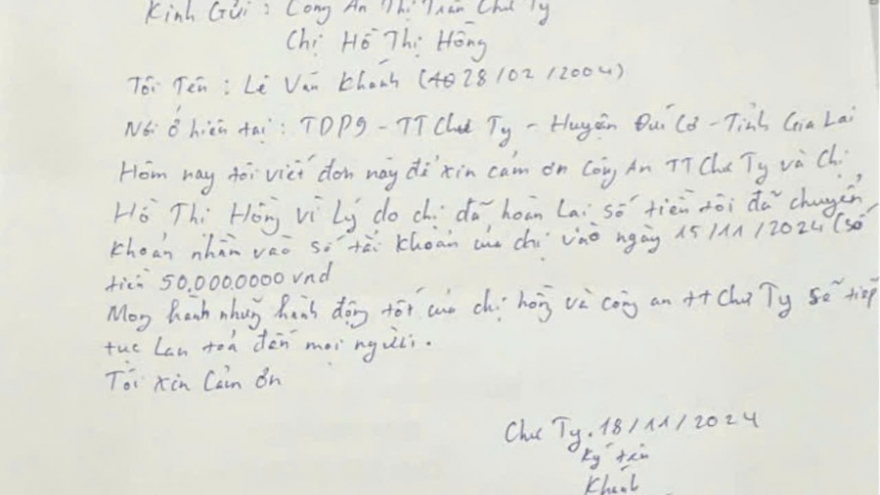 Kính Gửi : Công An Thị Trấn Chư Ty
Chị Hồ Thị Hồng
Tôi Tên : Lê Văn Khánh (28/02/2004)
Nơi ở hiện tại : TDP9 - TT Chư Ty - Huyện Đức Cơ - Tỉnh Gia Lai
Hôm nay tôi viết đơn này để xin cảm ơn Công An TT Chư Ty và Chị
Hồ Thị Hồng vì Lý do chị đã hoàn Lại số tiền tôi đã chuyển
khoản nhầm vào số tài khoản của chị vào ngày 15/11/2024 (số
tiền 50,000.0000 vnđ
Mong hành những hành động tốt của chị hồng và công an tt Chư Ty sẽ tiếp
tục Lan toả đến mọi người.
Tôi xin Cảm ơn
Chư Ty. 18/11/2024
Ký tên
Khánh